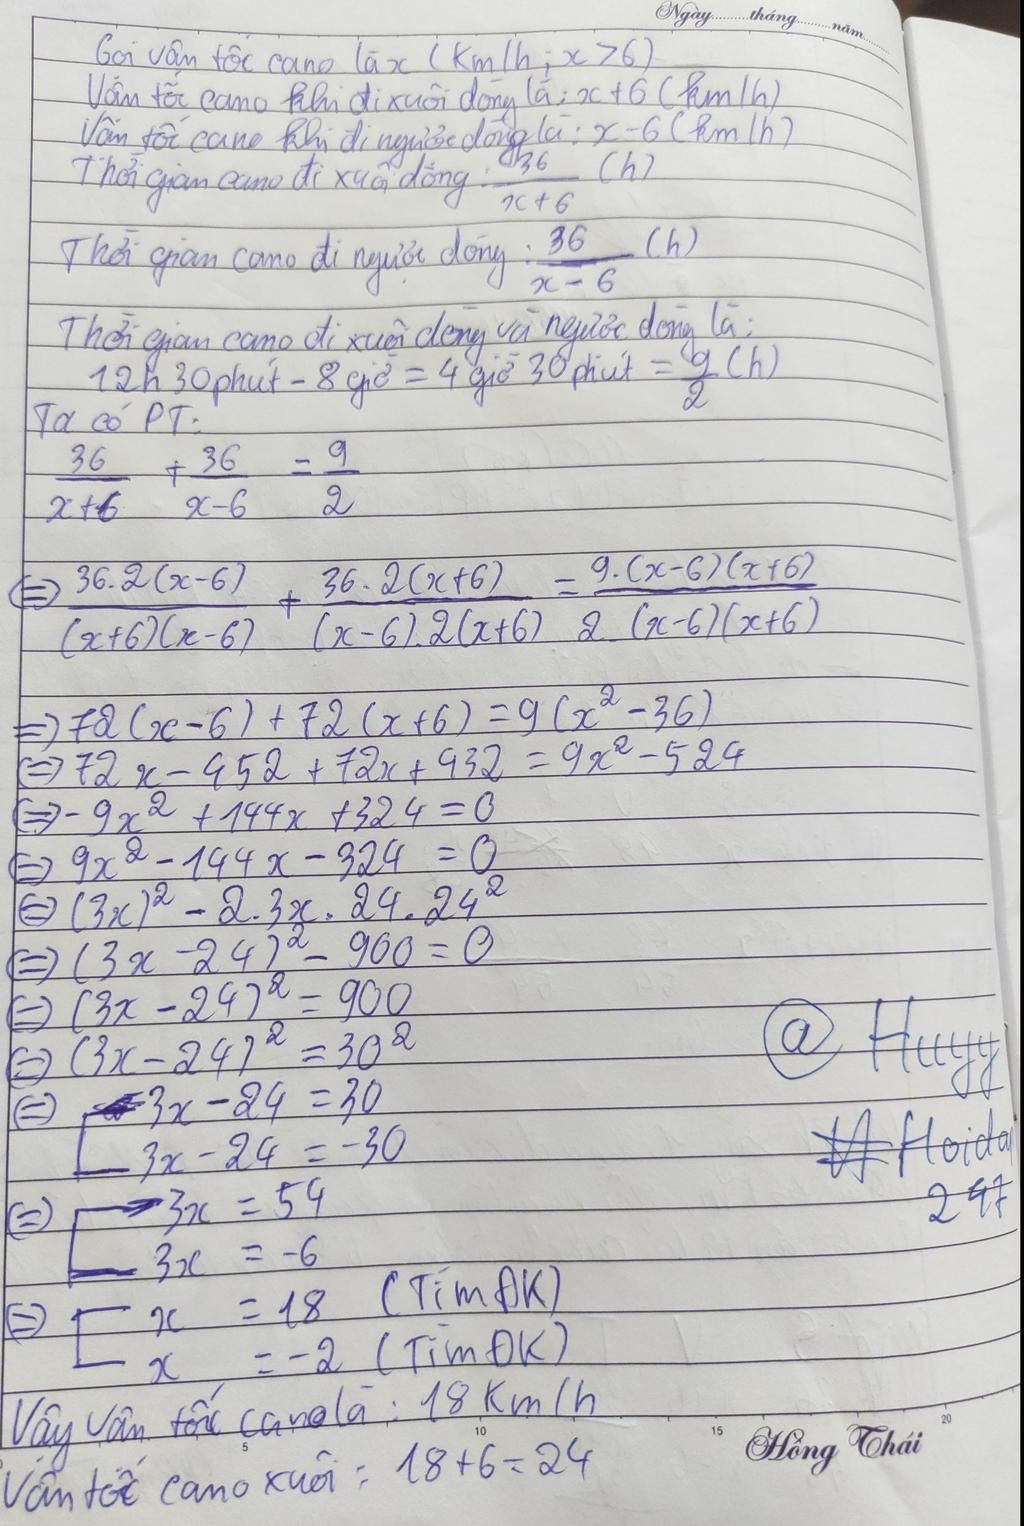 Ngày.........tháng.........năm.........
Gọi vận tốc cano là x (Km/h; x>6)
Vận tốc cano khi đi xuôi dòng là: x+6 (km/h)
Vận tốc cano khi đi ngược dòng là: x-6 (km/h)
Thời gian cano đi xuôi dòng: 36/(x+6) (h)
Thời gian cano đi ngược dòng: 36/(x-6) (h)
Thời gian cano đi xuôi dòng và ngược dòng là:
12h 30 phút - 8 giờ = 4 giờ 30 phút = 9/2 (h)
Ta có PT:
36/(x+6) + 36/(x-6) = 9/2
⇔ 36.2(x-6)/((x+6)(x-6)) + 36.2(x+6)/((x-6).2(x+6)) = 9.(x-6)(x+6)/(2.(x-6)(x+6))
⇒ 72(x-6) + 72(x+6) = 9(x² - 36)
⇔ 72x - 452 + 72x + 432 = 9x² - 524
⇔ -9x² + 144x + 324 = 0
⇔ 9x² - 144x - 324 = 0
⇔ (3x)² - 2.3x.24.24²
⇔ (3x - 24)² - 900 = 0
⇔ (3x - 24)² = 900
⇔ (3x - 24)² = 30²
⇔ [ 3x - 24 = 30
3x - 24 = -30
⇔ [ 3x = 54
3x = -6
⇔ [ x = 18 (TimĐK)
x = -2 (TimĐK)
Vậy vận tốc cano là: 18 Km/h
Vận tốc cano xuôi: 18+6=24
@ Huyy
Hoida
247
5 10 15 20
Hồng Thái